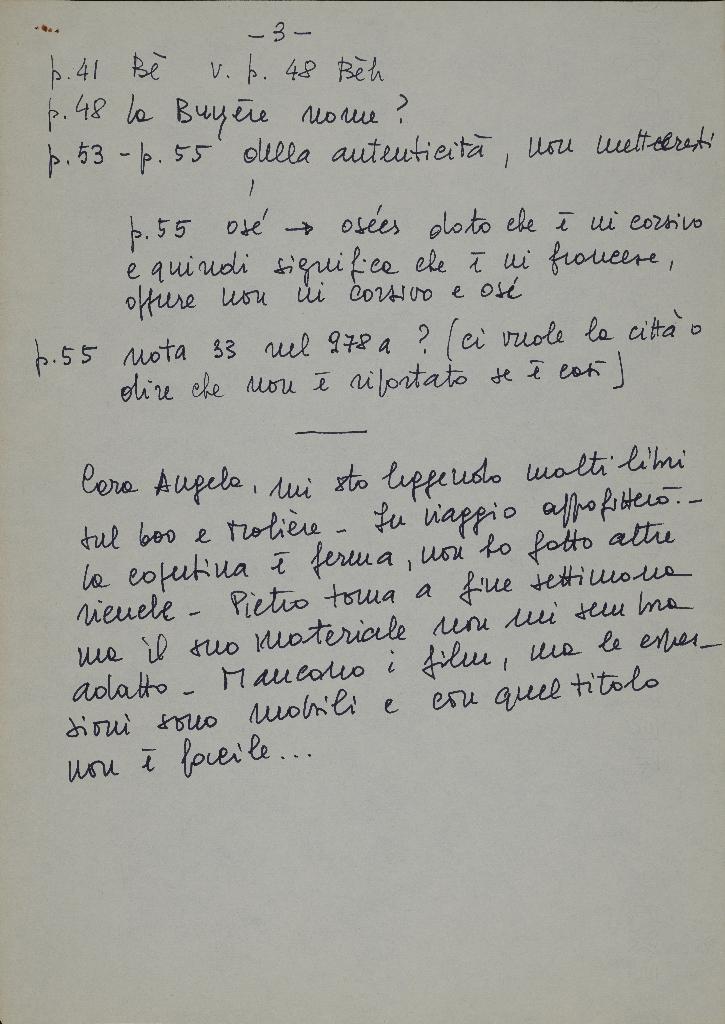 - 3 -
p. 41 Bè v. p. 48 Bèh
p. 48 la Buyère nome?
p. 53 - p. 55 della autenticità, non metteresti
,
p. 55 osé → osées dato che è in corsivo
e quindi significa che è in francese,
oppure non in corsivo e osé
p. 55 nota 33 nel 978a? (ci vuole la città o
dire che non è riportato se è così)
Cara Angela, mi sto leggendo molti libri
sul 600 e Molière - In viaggio approfitterò. -
la copertina è ferma, non ho fatto altre
- Pietro torna a fine settimana
ma il suo materiale non mi sembra
adatto - Mancano i film, ma le espres-
sioni sono mobili e con quel titolo
non è facile...